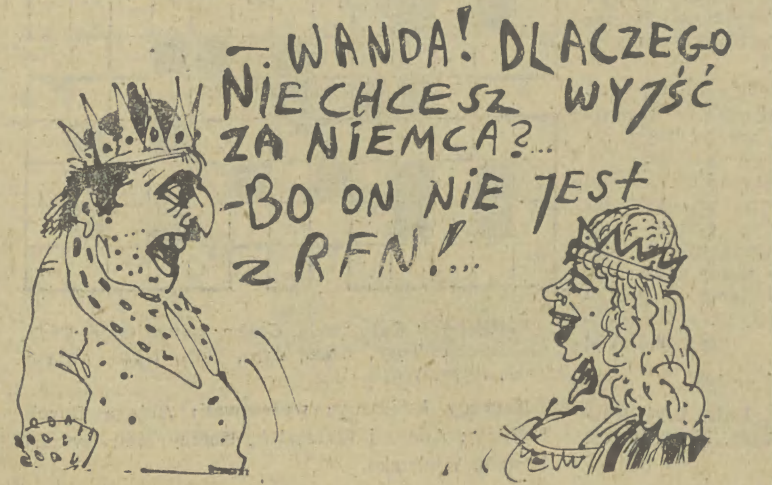 – WANDA! DLACZEGO
NIE CHCESZ WYJŚĆ
ZA NIEMCA?...
-BO ON NIE JEST
Z RFN!...